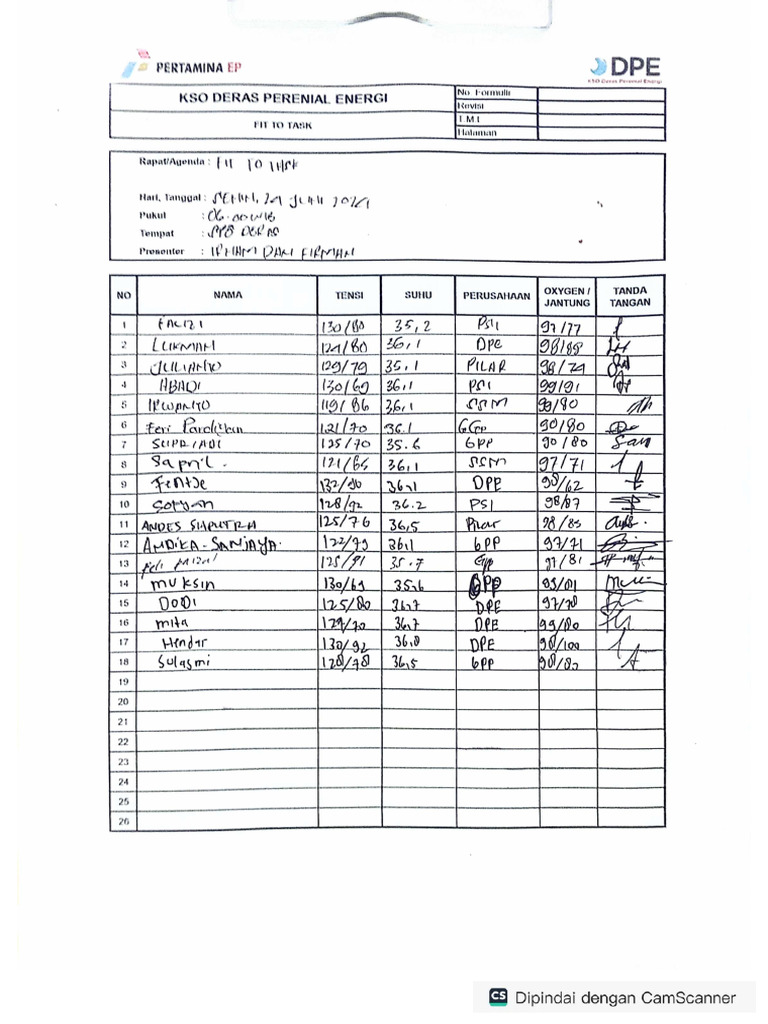 PERTAMINA EP
DPE
KSO Deras Perenial Energi
KSO DERAS PERENIAL ENERGI
FIT TO TASK
No Formulir
Revisi
T M T
Halaman
Rapat/Agenda : FIT TO TASK
Hari, Tanggal : SENIN, 24 JUNI 2024
Pukul : 06.00 WIB
Tempat : SPB DERAS
Presenter : IRHAM DAN FIRMAN
NO NAMA TENSI SUHU PERUSAHAAN OXYGEN / JANTUNG TANDA TANGAN
1 FAUZI 130/80 35,2 PSI 97/77
2 LUKMAN 121/80 36,1 DPE 98/88
3 JULIANTO 129/79 35,1 PILAR 98/79
4 ABADI 130/69 36,1 PSI 99/91
5 IRWANTO 119/86 36,1 SSM 99/80
6 Feri 121/70 36.1 GPP 90/80
7 SUPRIADI 125/70 35.6 GPP 90/80 San
8 Sapril. 121/65 36,1 SSM 97/71
9 Fentje 132/90 36,1 DPE 98/62
10 Sofyan 128/92 36.2 PSI 98/87
11 ANDES SAPUTRA 125/76 36,5 Pilar 98/83
12 ANDIKA-SANJAYA. 122/79 36,1 GPP 97/71
13 125/91 35.7 GPP 97/81
14 muksin 130/69 35.6 GPP 93/81
15 DODI 125/80 36.7 DPE 97/78
16 mita 129/70 36,7 DPE 99/80
17 Hendar 130/92 36,8 DPE 98/100
18 Sulasmi 128/78 36,5 GPP 98/82
19
20
21
22
23
24
25
26
CS Dipindai dengan CamScanner